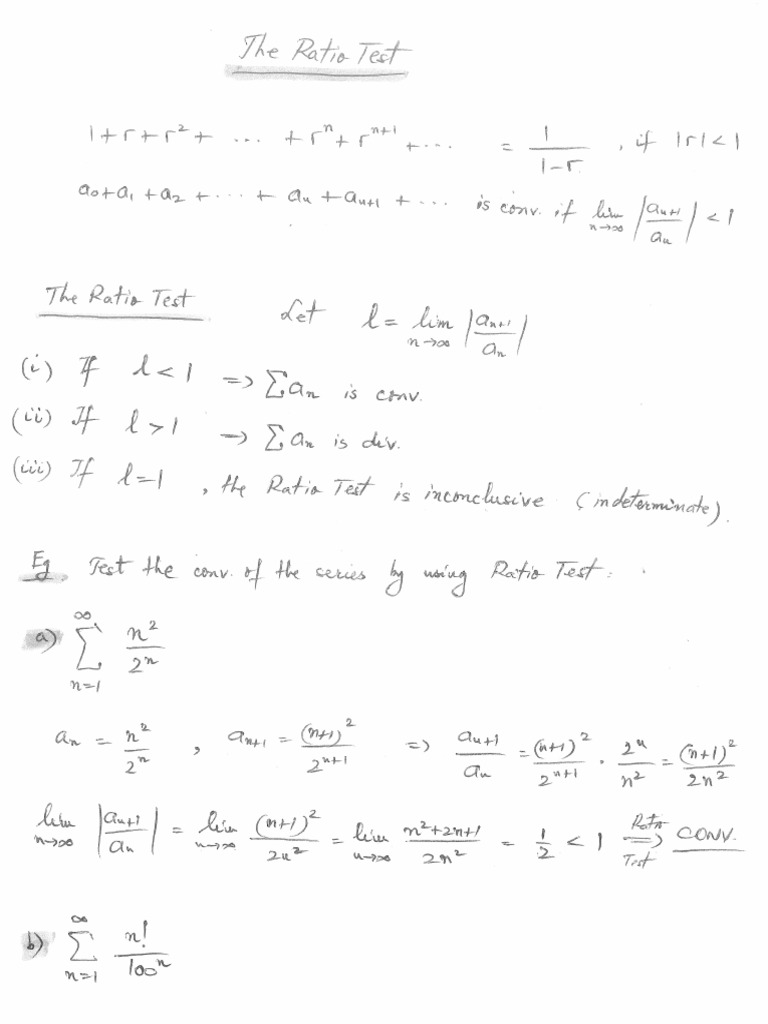 The Ratio Test
1+r+r²+ ... +rⁿ+rⁿ⁺¹+... = 1/(1-r), if |r|<1
a₀+a₁+a₂+...+aₙ+aₙ₊₁+... is conv. if lim n→∞ |aₙ₊₁/aₙ| <1
The Ratio Test Let l = lim n→∞ |aₙ₊₁/aₙ|
(i) If l<1 => ∑aₙ is conv.
(ii) If l>1 => ∑aₙ is div.
(iii) If l=1, the Ratio Test is inconclusive (indeterminate).
Eg. Test the conv. of the series by using Ratio Test:
a) ∑ n=1 ∞ n²/2ⁿ
aₙ = n²/2ⁿ , aₙ₊₁ = (n+1)²/2ⁿ⁺¹ => aₙ₊₁/aₙ = (n+1)²/2ⁿ⁺¹ · 2ⁿ/n² = (n+1)²/2n²
lim n→∞ |aₙ₊₁/aₙ| = lim n→∞ (n+1)²/2n² = lim n→∞ (n²+2n+1)/2n² = 1/2 < 1 Ratio Test => CONV.
b) ∑ n=1 ∞ n!/100ⁿ